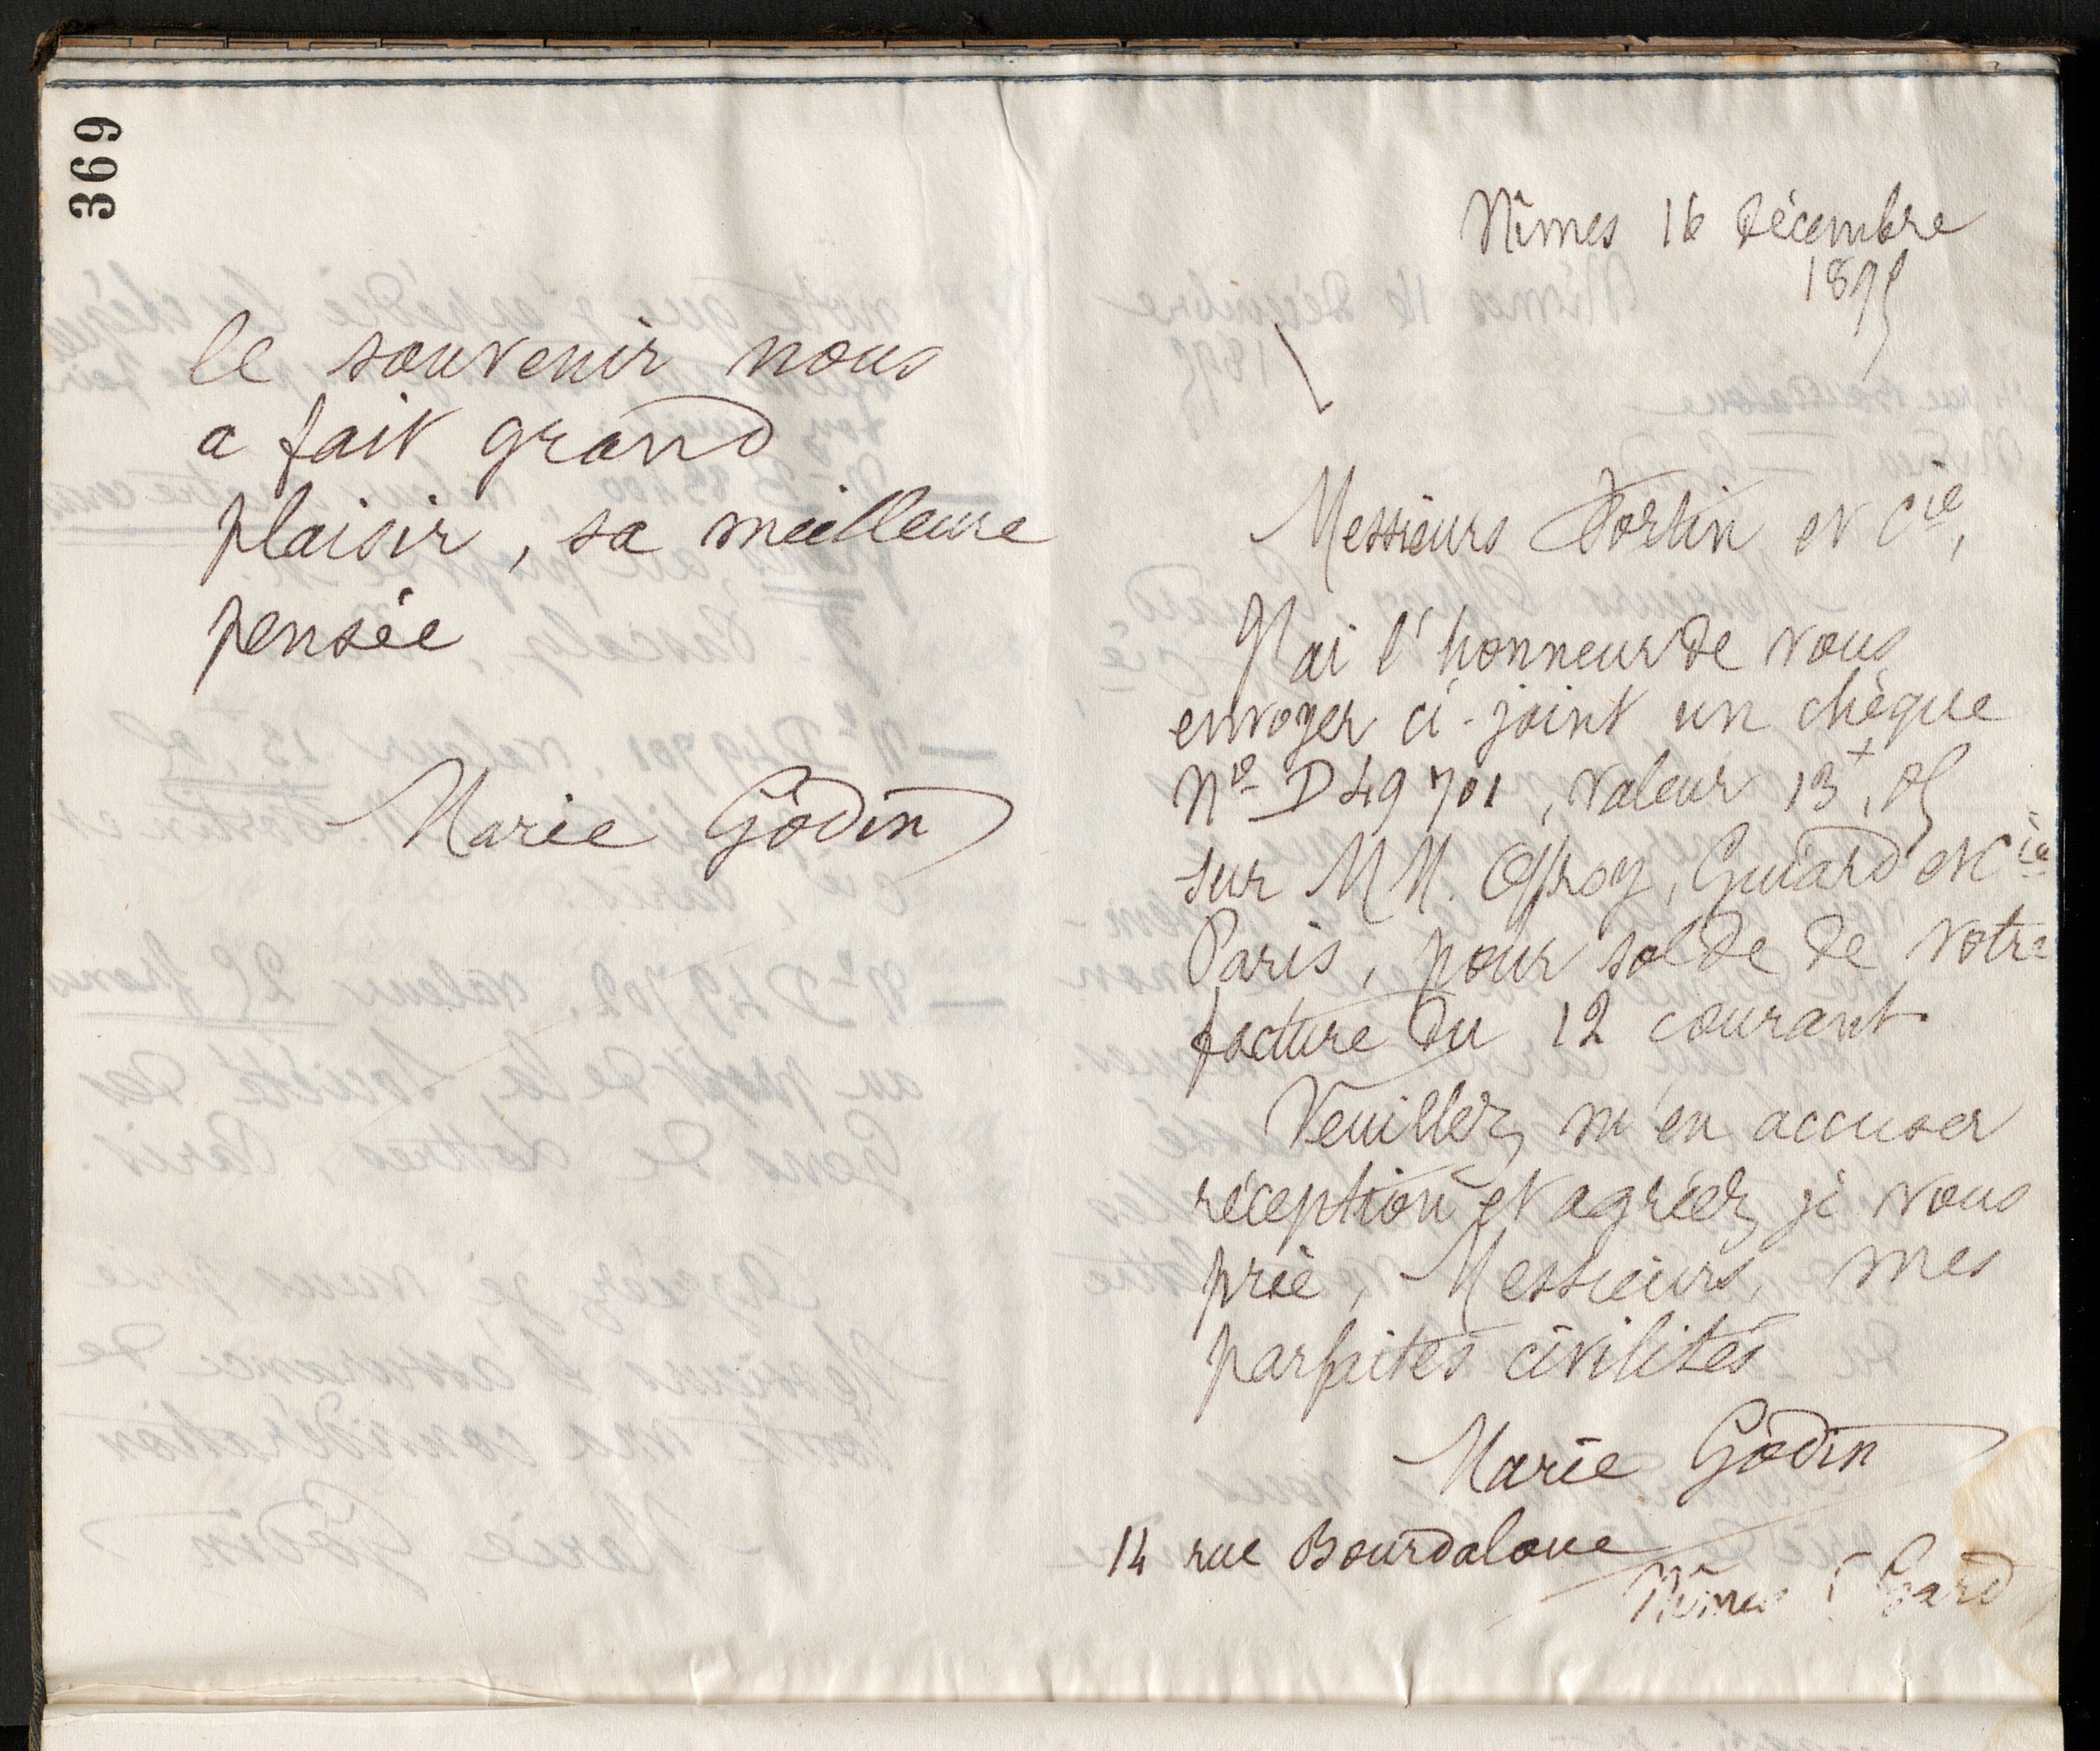 369
le souvenir nous
a fait grand
plaisir, sa meilleure
pensée
Marie Godin
Nîmes 16 Décembre
1895
Messieurs Dortin et Cie,
J'ai l'honneur de vous
envoyer ci-joint un chèque
No D49701, valeur 13f,05
sur MM. Offroy, Guiard et Cie
Paris, pour solde de votre
facture du 12 courant
Veuillez m'en accuser
réception et agréez, je vous
prie, Messieurs, mes
parfaites civilités
Marie Godin
14 rue Bourdaloue
Nîmes (Gard)